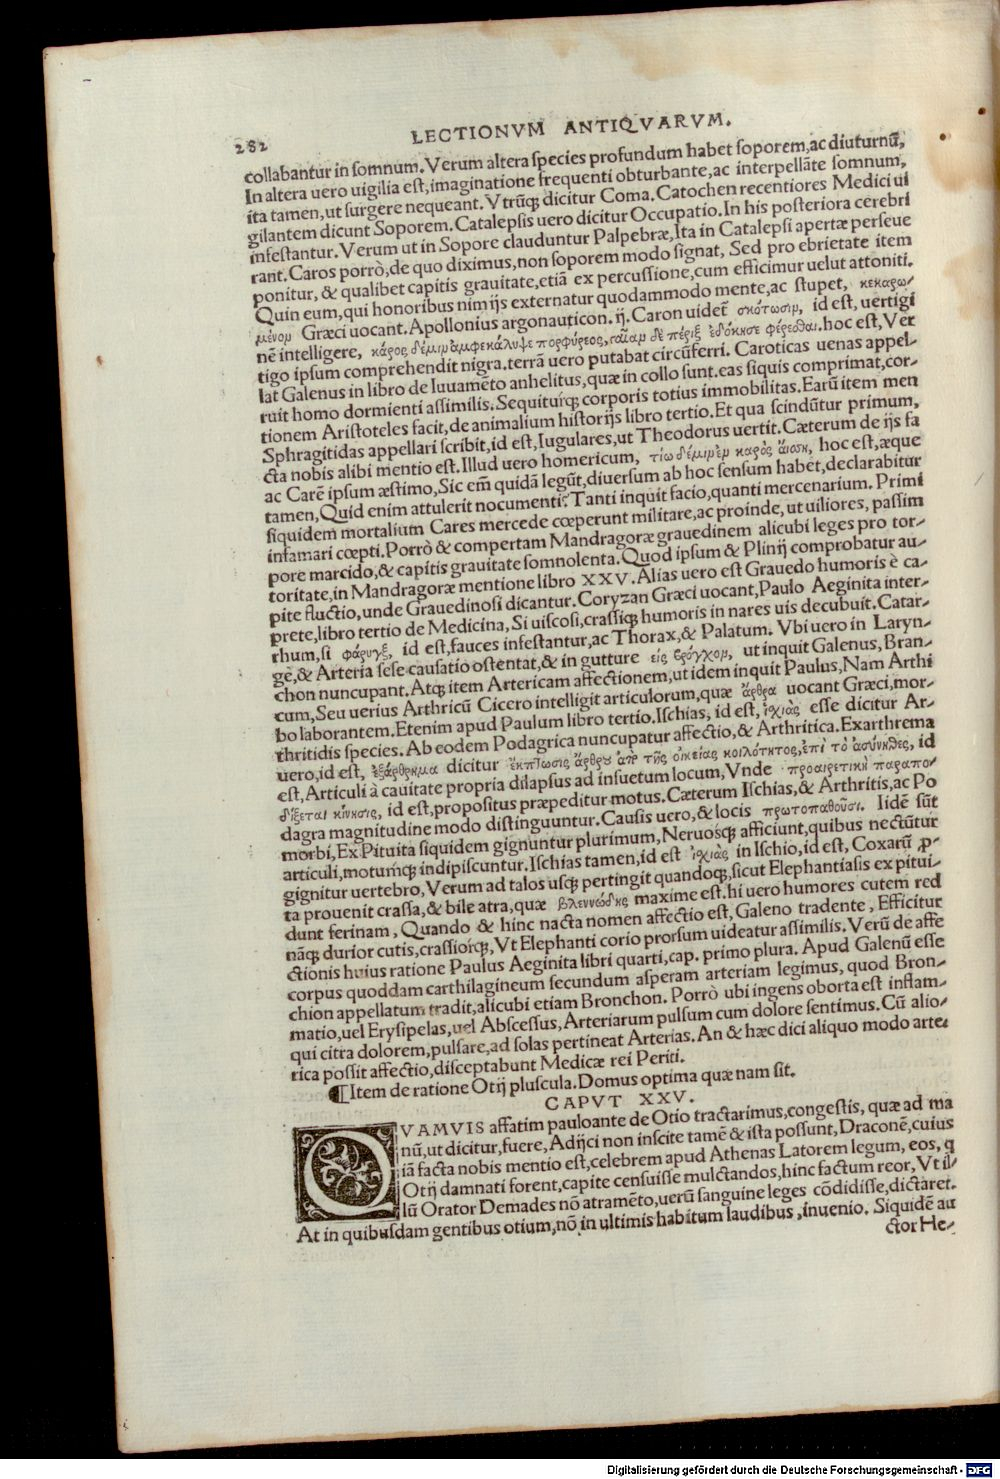 282
LECTIONVM ANTIQVARVM.
collabantur in somnum. Verum altera species profundum habet soporem, ac diuturnū,
In altera uero uigilia est, imaginatione frequenti obturbante, ac interpellāte somnum,
ita tamen, ut surgere nequeant. Vtrūq; dicitur Coma. Catochen recentiores Medici ui
gilantem dicunt Soporem. Catalepsis uero dicitur Occupatio. In his posteriora cerebri
infestantur. Verum ut in Sopore clauduntur Palpebræ, Ita in Catalepsi apertæ perseue
rant. Caros porrò, de quo diximus, non soporem modo signat, Sed pro ebrietate item
ponitur, & qualibet capitis grauitate, etiā ex percussione, cum efficimur uelut attoniti.
Quin eum, qui honoribus nimijs externatur quodammodo mente, ac stupet, κεκαρω-
μένον Græci uocant. Apollonius argonauticon. ij. Caron uidet̄ σκότωσιμ, id est, uertigi
nē intelligere, κάρος δέ μιν ἀμφεκάλυψε πορφύρεος, γαῖαν δὲ πέριξ ἐδόκησε φέρεσθαι. hoc est, Ver
tigo ipsum comprehendit nigra. terrā uero putabat circūferri. Caroticas uenas appel-
lat Galenus in libro de Iuuamēto anhelitus, quæ in collo sunt. eas siquis comprimat, cor-
ruit homo dormienti assimilis. Sequiturq; corporis totius immobilitas. Earū item men
tionem Aristoteles facit, de animalium historijs libro tertio. Et qua scindūtur primum,
Sphragitidas appellari scribit, id est, Iugulares, ut Theodorus uertit. Cæterum de ijs fa
cta nobis alibi mentio est. Illud uero homericum, τίω δέ μιν ἐν καρὸς ἄιση, hoc est, æque
ac Carē ipsum æstimo, Sic em̄ quidā legūt, diuersum ab hoc sensum habet, declarabitur
tamen, Quid enim attulerit nocumenti: Tanti inquit facio, quanti mercenarium. Primi
siquidem mortalium Cares mercede cœperunt militare, ac proinde, ut uiliores, passim
infamari cœpti. Porrò & compertam Mandragoræ grauedinem alicubi leges pro tor-
pore marcido, & capitis grauitate somnolenta. Quod ipsum & Plinij comprobatur au-
toritate, in Mandragoræ mentione libro XXV. Alias uero est Grauedo humoris è ca-
pite fluctio, unde Grauedinosi dicantur. Coryzan Græci uocant, Paulo Aeginita inter-
prete, libro tertio de Medicina, Si uiscosi, crassiq; humoris in nares uis decubuit. Catar-
rhum, si φάρυγξ, id est, fauces infestantur, ac Thorax, & Palatum. Vbi uero in Laryn-
gē, & Arteria sese causatio ostentat, & in gutture εἰς βρόγχον, ut inquit Galenus, Bran-
chon nuncupant. Atq; item Artericam affectionem, ut idem inquit Paulus, Nam Arthi
cum, Seu uerius Arthricū Cicero intelligit articulorum, quæ ἄρθρα uocant Græci, mor-
bo laborantem. Etenim apud Paulum libro tertio. Ischias, id est, ἰχιὰς esse dicitur Ar-
thritidis species. Ab eodem Podagrica nuncupatur affectio, & Arthritica. Exarthrema
uero, id est, ἐξάρθρημα dicitur ἔκπτωσις ἄρθρου ἀπὸ τῆς οἰκείας κοιλότητος, ἐπὶ τὸ ἀσύνηθες, id
est, Articuli à cauitate propria dilapsus ad insuetum locum, Vnde προαιρετικὴ παραπο-
δίξεται κίνησις, id est, propositus præpeditur motus. Cæterum Ischias, & Arthritis, ac Po
dagra magnitudine modo distinguuntur. Causis uero, & locis πρωτοπαθοῦσι. Iidē sūt
morbi, Ex Pituita siquidem gignuntur plurimum, Neruosq; afficiunt, quibus nectūtur
articuli, motumq; indipiscuntur. Ischias tamen, id est ἰχιὰς in Ischio, id est, Coxarū p-
gignitur uertebro, Verum ad talos usq; pertingit quandoq;, sicut Elephantiasis ex pitui-
ta prouenit crassa, & bile atra, quæ βλεννώδης maxime est. hi uero humores cutem red
dunt ferinam, Quando & hinc nacta nomen affectio est, Galeno tradente, Efficitur
nāq; durior cutis, crassiorq;, Vt Elephanti corio prorsum uideatur assimilis. Verū de affe
ctionis huius ratione Paulus Aeginita libri quarti, cap. primo plura. Apud Galenū esse
corpus quoddam carthilagineum secundum asperam arteriam legimus, quod Bron-
chion appellatum tradit, alicubi etiam Bronchon. Porrò ubi ingens oborta est inflam-
matio, uel Erysipelas, uel Abscessus, Arteriarum pulsum cum dolore sentimus. Cū alio-
qui citra dolorem, pulsare, ad solas pertineat Arterias. An & hæc dici aliquo modo arte-
rica possit affectio, disceptabunt Medicæ rei Periti.
¶Item de ratione Otij pluscula. Domus optima quæ nam sit.
CAPVT XXV.
QVAMVIS affatim pauloante de Otio tractarimus, congestis, quæ ad ma
nū, ut dicitur, fuere, Adijci non inscite tamē & ista possunt, Draconē, cuius
iā facta nobis mentio est, celebrem apud Athenas Latorem legum, eos, q
Otij damnati forent, capite censuisse mulctandos, hinc factum reor, Vt il-
lū Orator Demades nō atramēto, uerū sanguine leges cōdidisse, dictaret.
At in quibusdam gentibus otium, nō in ultimis habitum laudibus, inuenio. Siquidē au
ctor He-
Digitalisierung gefördert durch die Deutsche Forschungsgemeinschaft - DFG